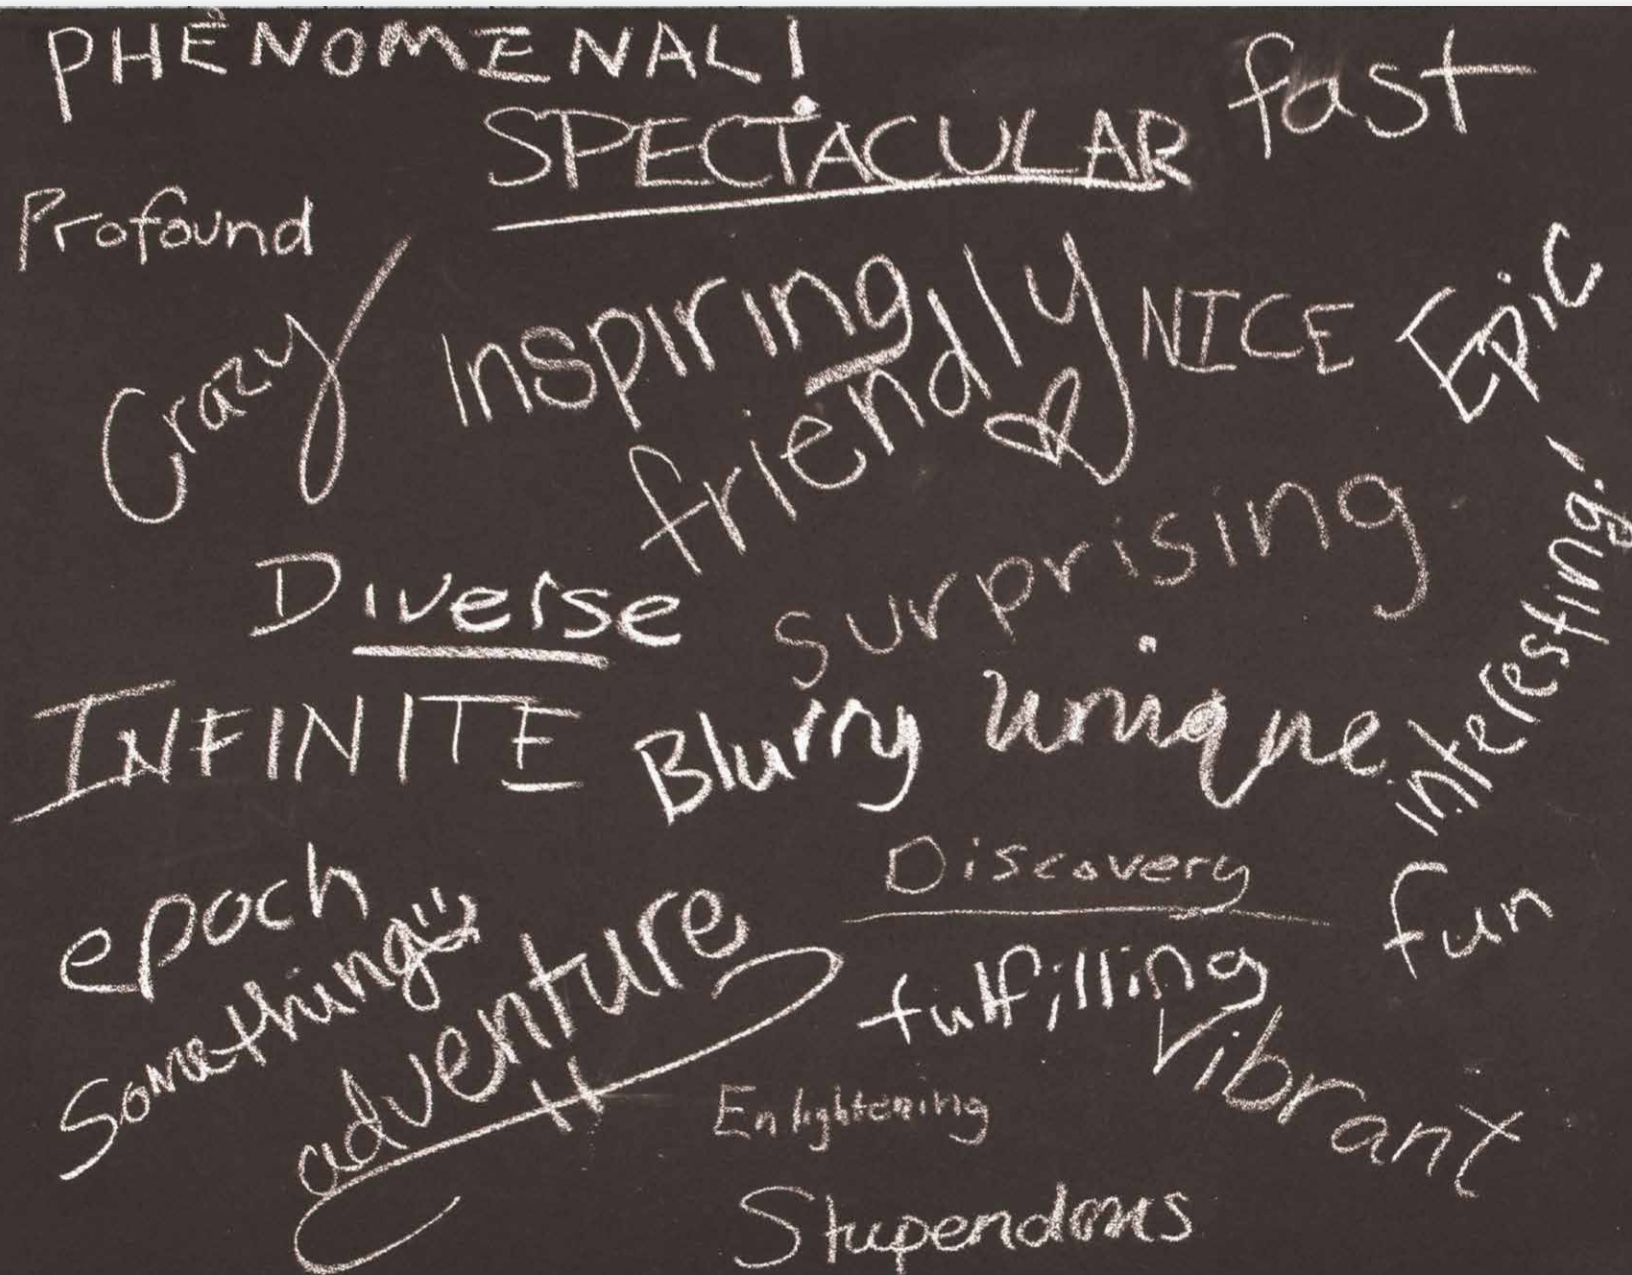 PHENOMENAL!
fast
SPECTACULAR
Profound
Crazy
Inspiring
friendly
NICE
Epic
Diverse
surprising
interesting!
INFINITE
Blurry
unique
epoch
Discovery
fun
Something
adventure
fulfilling
Vibrant
Enlightening
Stupendous